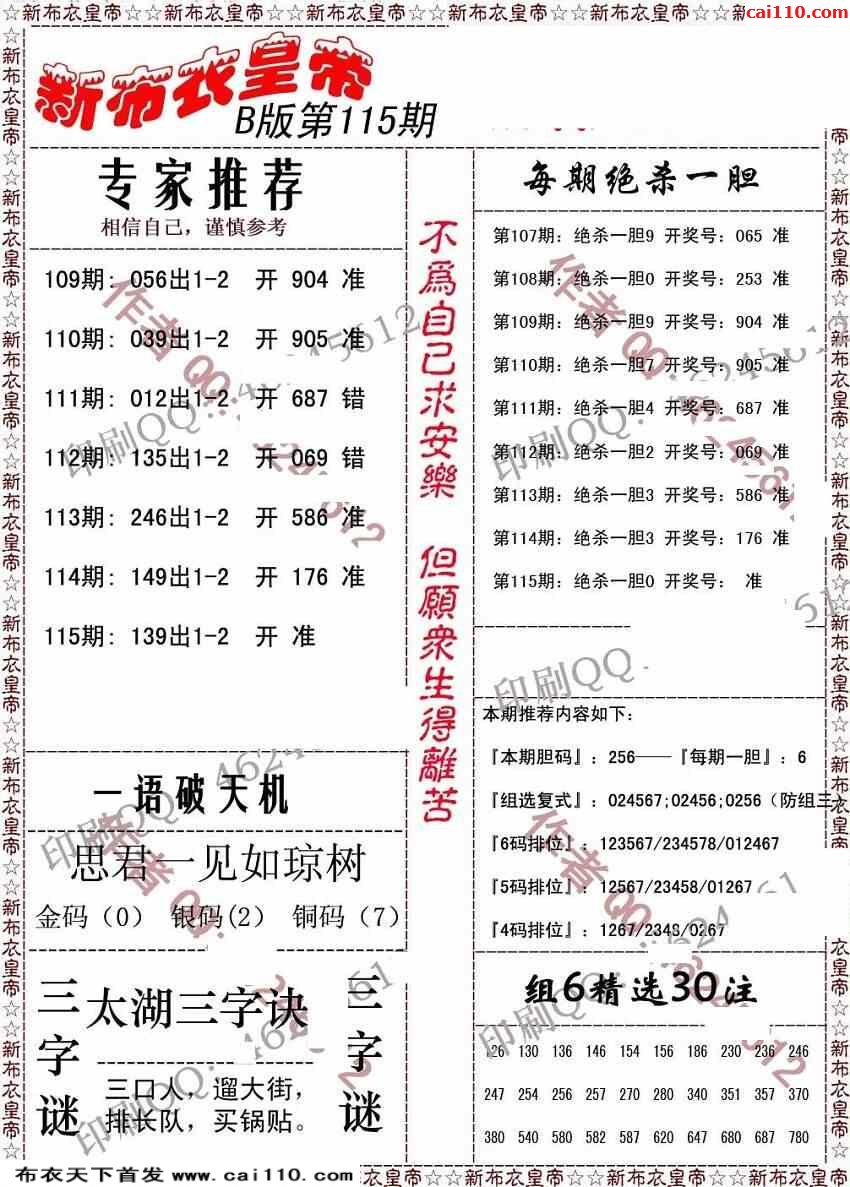 ☆☆新布衣皇帝☆☆新布衣皇帝☆☆新布衣皇帝☆☆新布衣皇帝☆☆新布衣皇帝☆☆
cai110.com
新布衣皇帝
B版第115期
专家推荐
相信自己，谨慎参考
109期: 056出1-2 开 904 准
110期: 039出1-2 开 905 准
111期: 012出1-2 开 687 错
112期: 135出1-2 开 069 错
113期: 246出1-2 开 586 准
114期: 149出1-2 开 176 准
115期: 139出1-2 开 准
一语破天机
思君一见如琼树
金码（0） 银码(2) 铜码（7）
三字谜
太湖三字诀
三口人，遛大街，
排长队，买锅贴。
三字谜
不爲自己求安樂 但願衆生得離苦
每期绝杀一胆
第107期: 绝杀一胆9 开奖号: 065 准
第108期: 绝杀一胆0 开奖号: 253 准
第109期: 绝杀一胆9 开奖号: 904 准
第110期: 绝杀一胆7 开奖号: 905 准
第111期: 绝杀一胆4 开奖号: 687 准
第112期: 绝杀一胆2 开奖号: 069 准
第113期: 绝杀一胆3 开奖号: 586 准
第114期: 绝杀一胆3 开奖号: 176 准
第115期: 绝杀一胆0 开奖号: 准
本期推荐内容如下:
『本期胆码』: 256——『每期一胆』: 6
『组选复式』: 024567;02456;0256（防组三）
『6码排位』: 123567/234578/012467
『5码排位』: 12567/23458/01267
『4码排位』: 1267/2348/0267
组6精选30注
126 130 136 146 154 156 186 230 236 246
247 254 256 257 270 280 340 351 357 370
380 540 580 582 587 620 647 680 687 780
布衣天下首发 www.cai110.com
衣皇帝☆☆新布衣皇帝☆☆新布衣皇帝☆☆新布衣皇帝☆